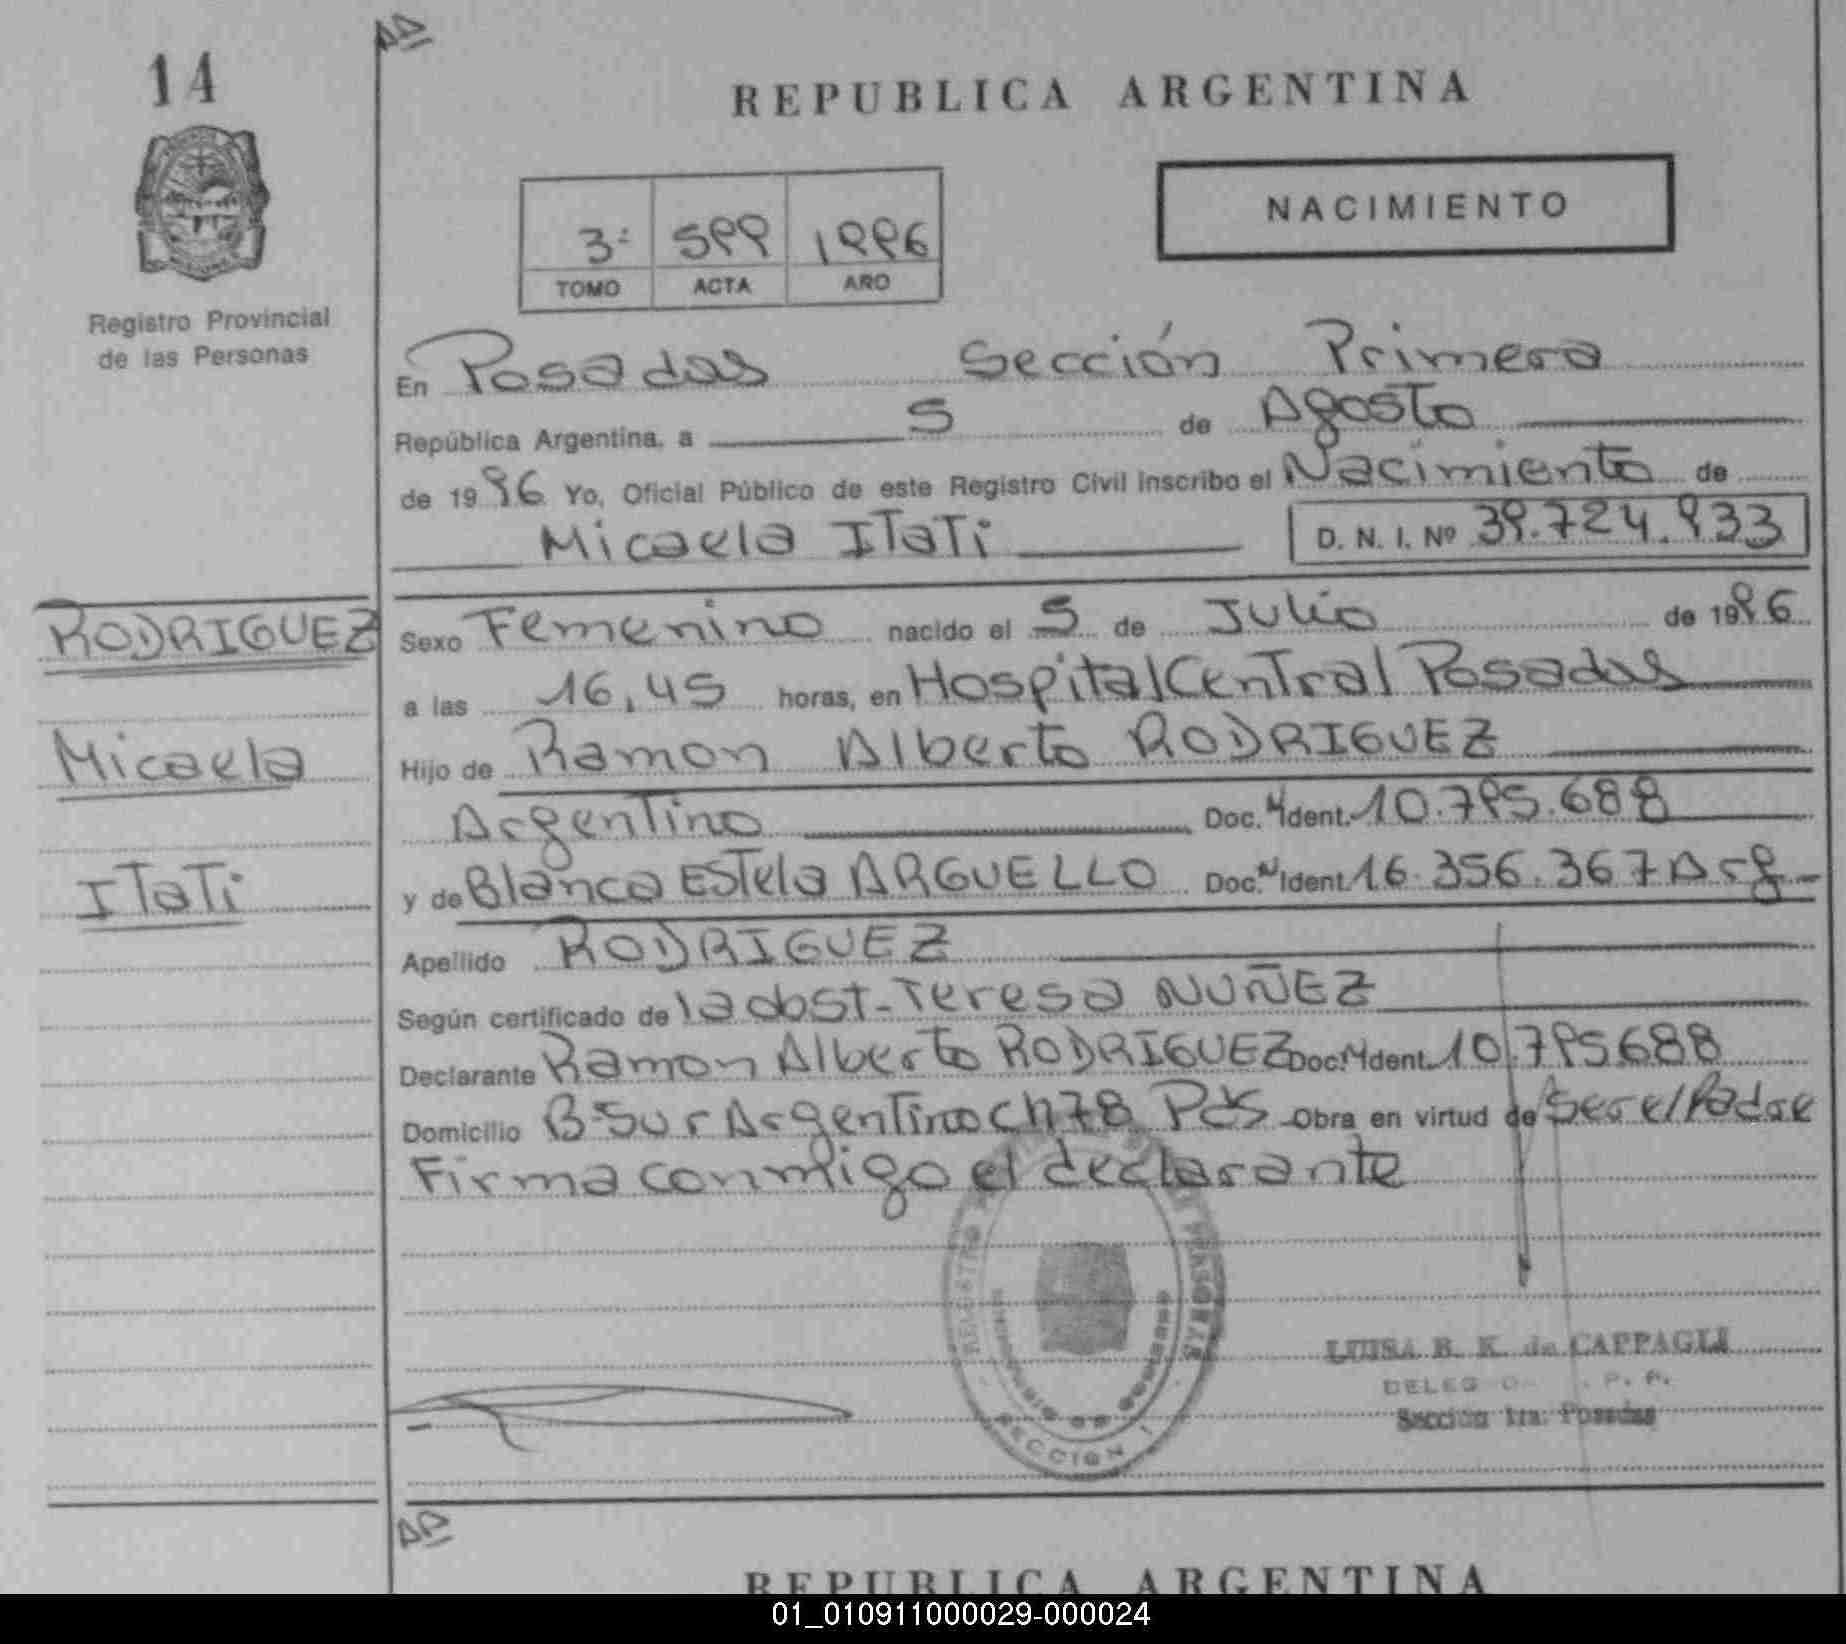 14
REPUBLICA ARGENTINA
NACIMIENTO
3º 599 1996
TOMO ACTA AÑO
Registro Provincial
de las Personas
En Posadas Sección Primera
República Argentina, a 5 de Agosto
de 1996 Yo, Oficial Público de este Registro Civil inscribo el Nacimiento de
Micaela ITaTi D. N. I. Nº 39.724.933
RODRIGUEZ
Micaela
ITaTi
Sexo Femenino nacido el 5 de Julio de 1996
a las 16,45 horas, en Hospital Central Posadas
Hijo de Ramon Alberto RODRIGUEZ
Argentino Doc. Ident. 10.795.688
y de Blanca Estela ARGUELLO Doc. Ident. 16.356.367 Arg
Apellido RODRIGUEZ
Según certificado de la obst. Teresa NUÑEZ
Declarante Ramon Alberto RODRIGUEZ Doc. Ident. 10.795688
Domicilio B. Sur Argentino CH 78 Pdas Obra en virtud de Ser el Padre
Firma conmigo el declarante
REGISTRO PERSONAS
SECCION 1
LUISA B. K. de CAPPAGLI
Sección 1ra. Posadas
REPUBLICA ARGENTINA
01_010911000029-000024